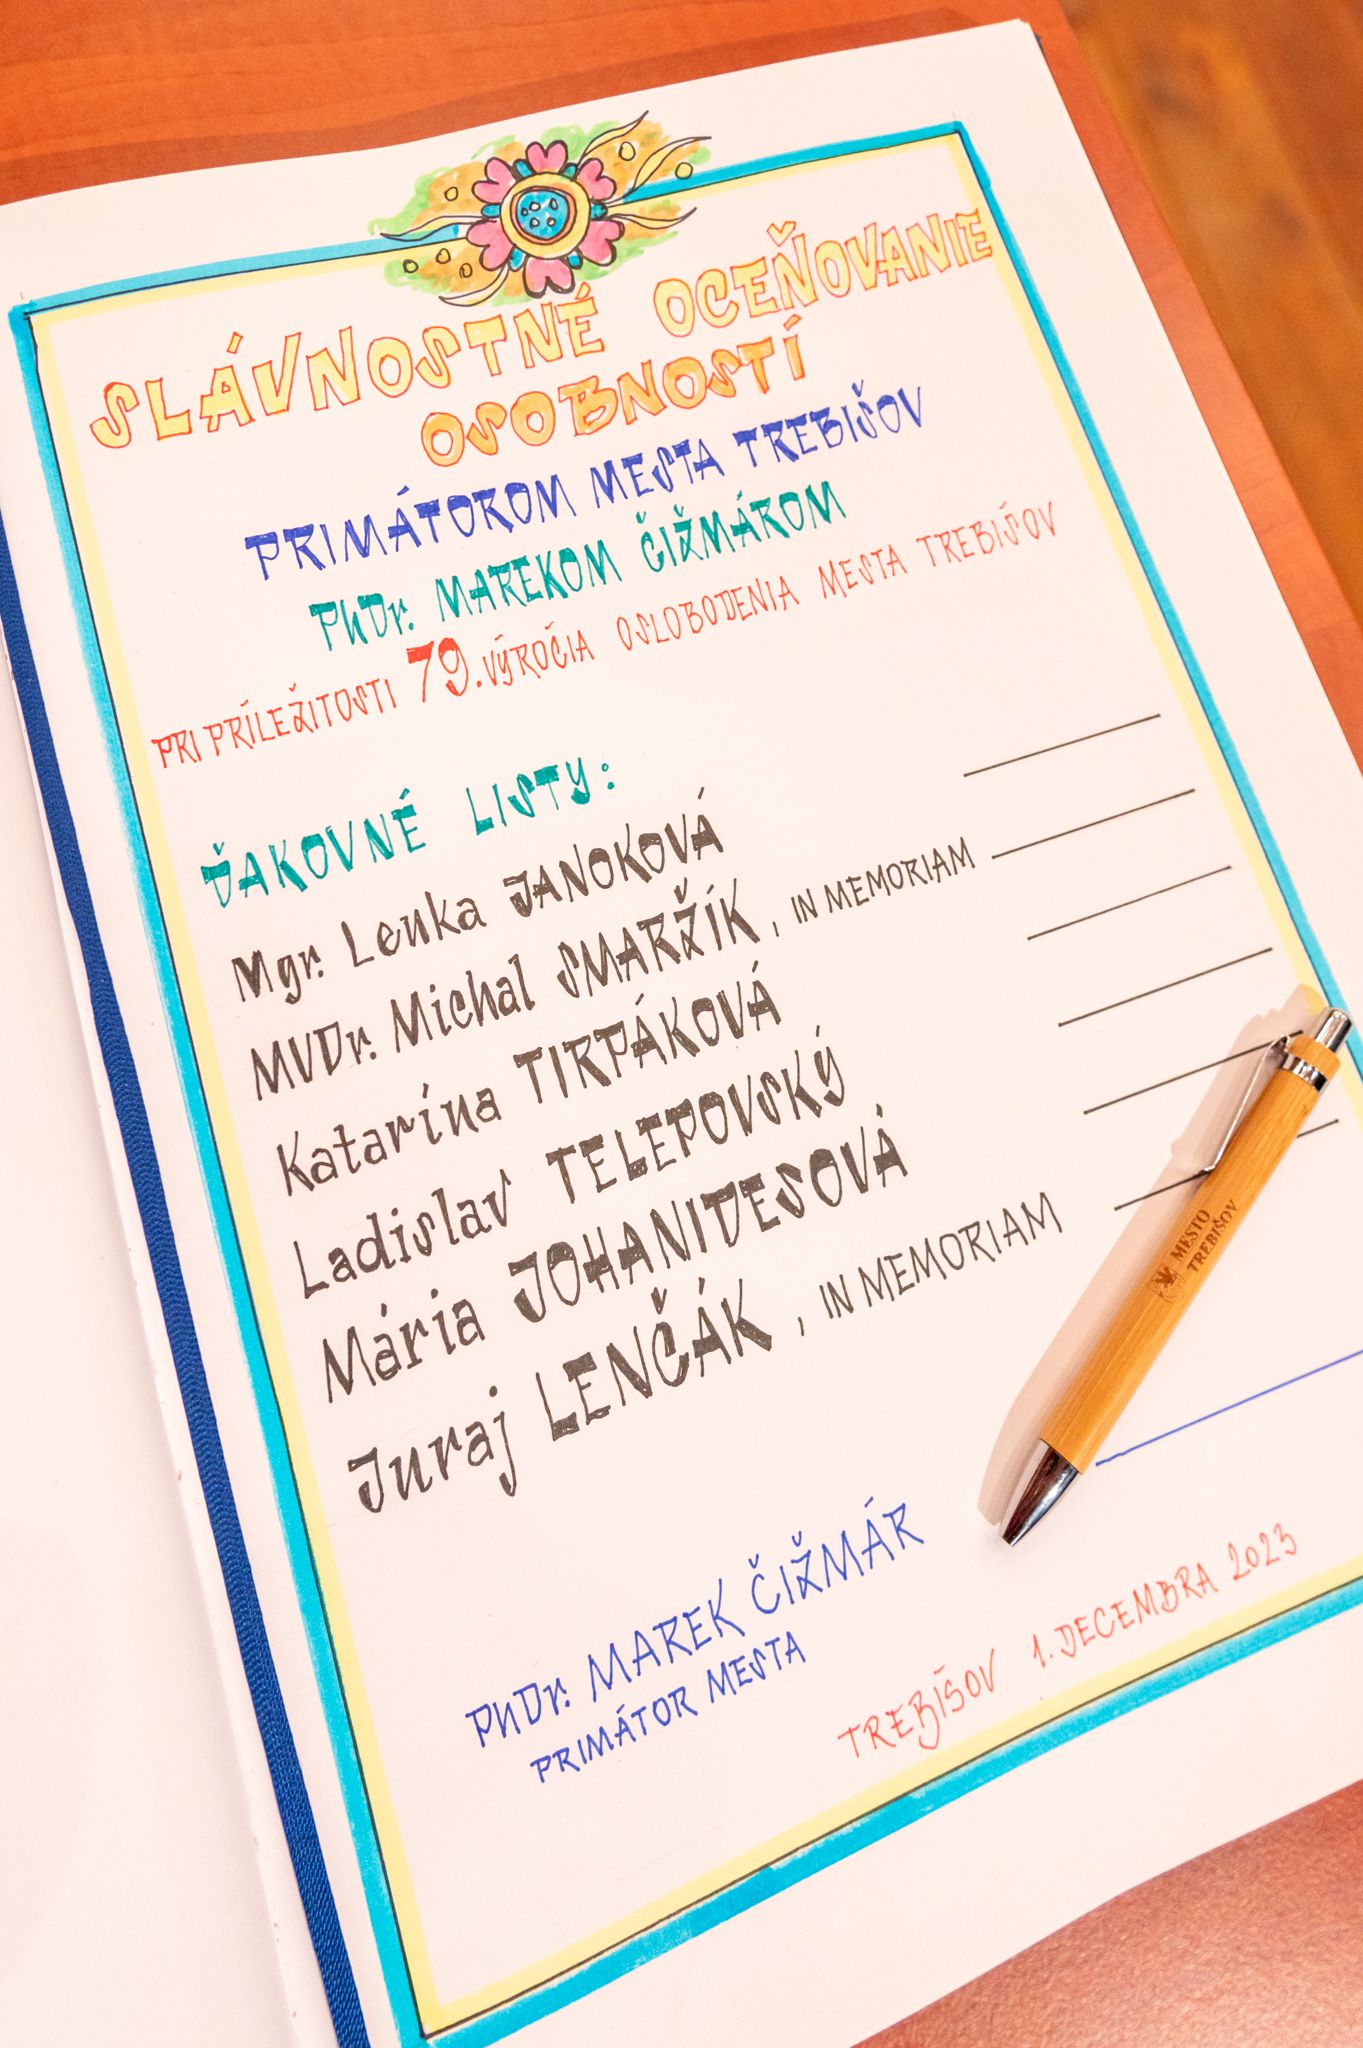 SLÁVNOSTNÉ OCEŇOVANIE
OSOBNOSTÍ
PRIMÁTOROM MESTA TREBIŠOV
PhDr. MAREKOM ČIŽMÁROM
PRI PRÍLEŽITOSTI 79. VÝROČIA OSLOBODENIA MESTA TREBIŠOV
ĎAKOVNÉ LISTY:
Mgr. Lenka JANOKOVÁ
MVDr. Michal SMARŽÍK, IN MEMORIAM
Katarína TIRPÁKOVÁ
Ladislav TELEPOVSKÝ
Mária JOHANIDESOVÁ
Juraj LENČÁK, IN MEMORIAM
MESTO
TREBIŠOV
PhDr. MAREK ČIŽMÁR
PRIMÁTOR MESTA
TREBIŠOV 1. DECEMBRA 2023